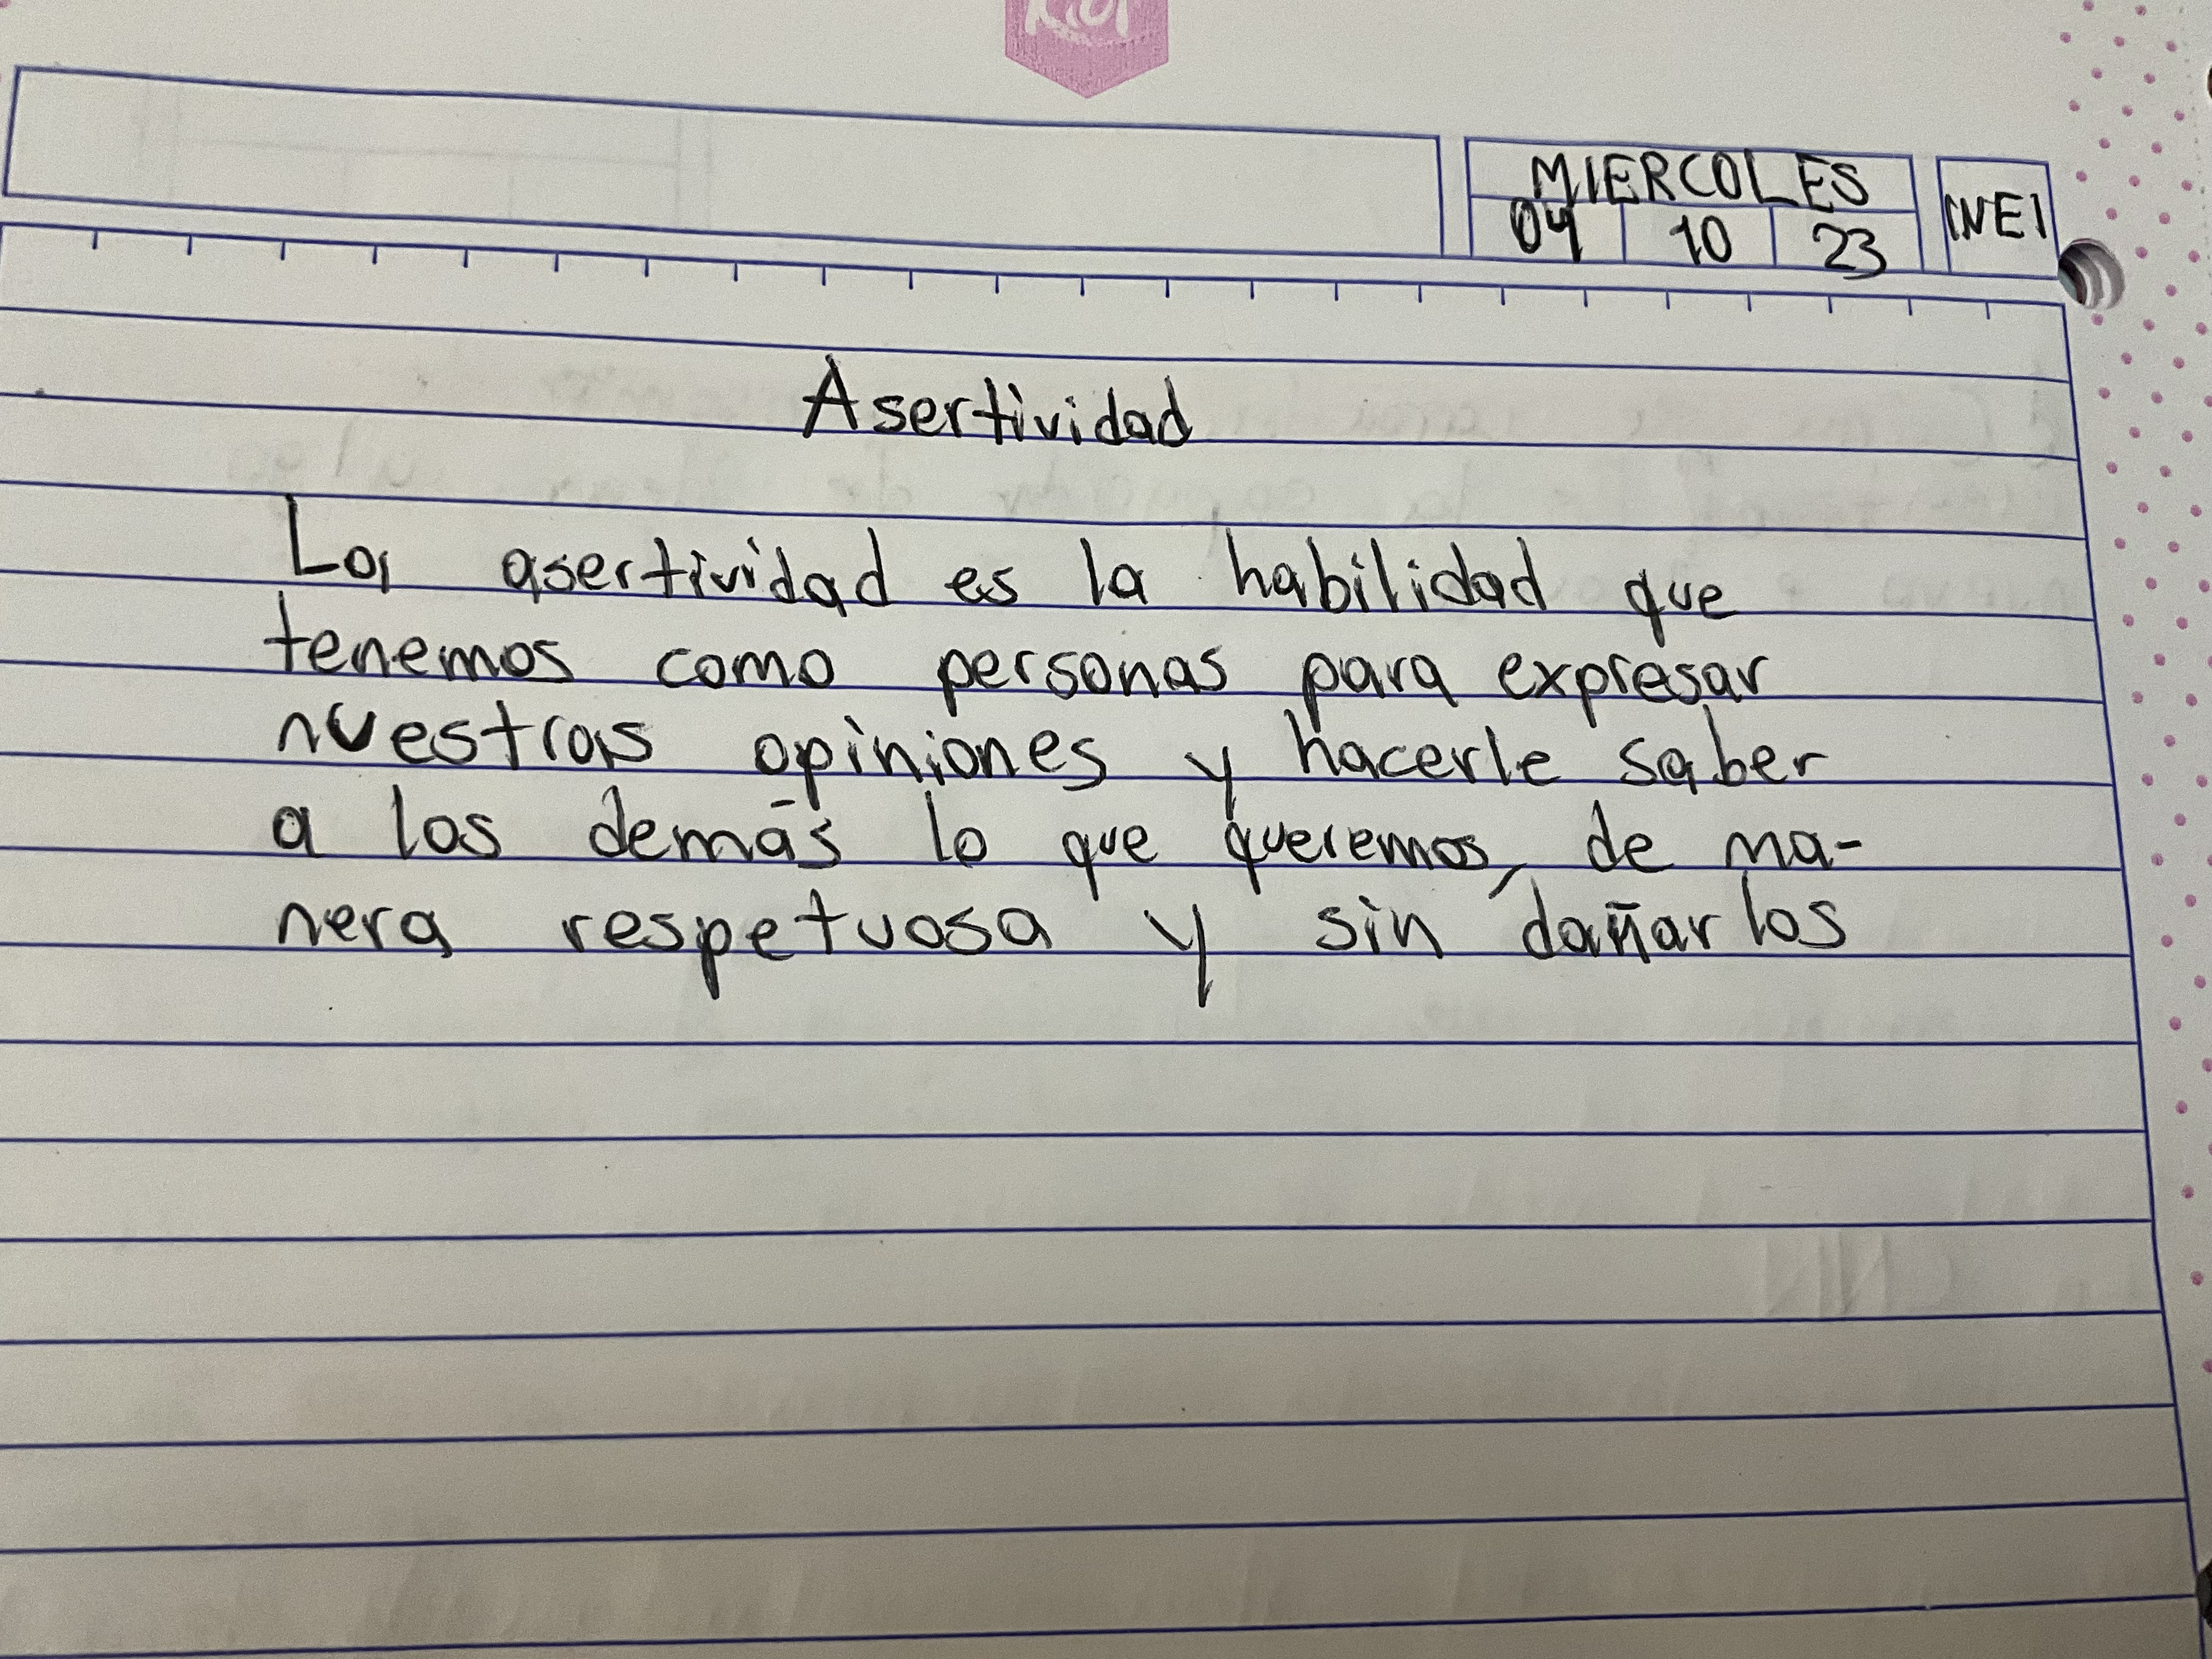 MIERCOLES
04 10 23
INEI
Asertividad
La asertividad es la habilidad que
tenemos como personas para expresar
nuestras opiniones y hacerle saber
a los demás lo que queremos, de ma-
nera respetuosa y sin dañarlos